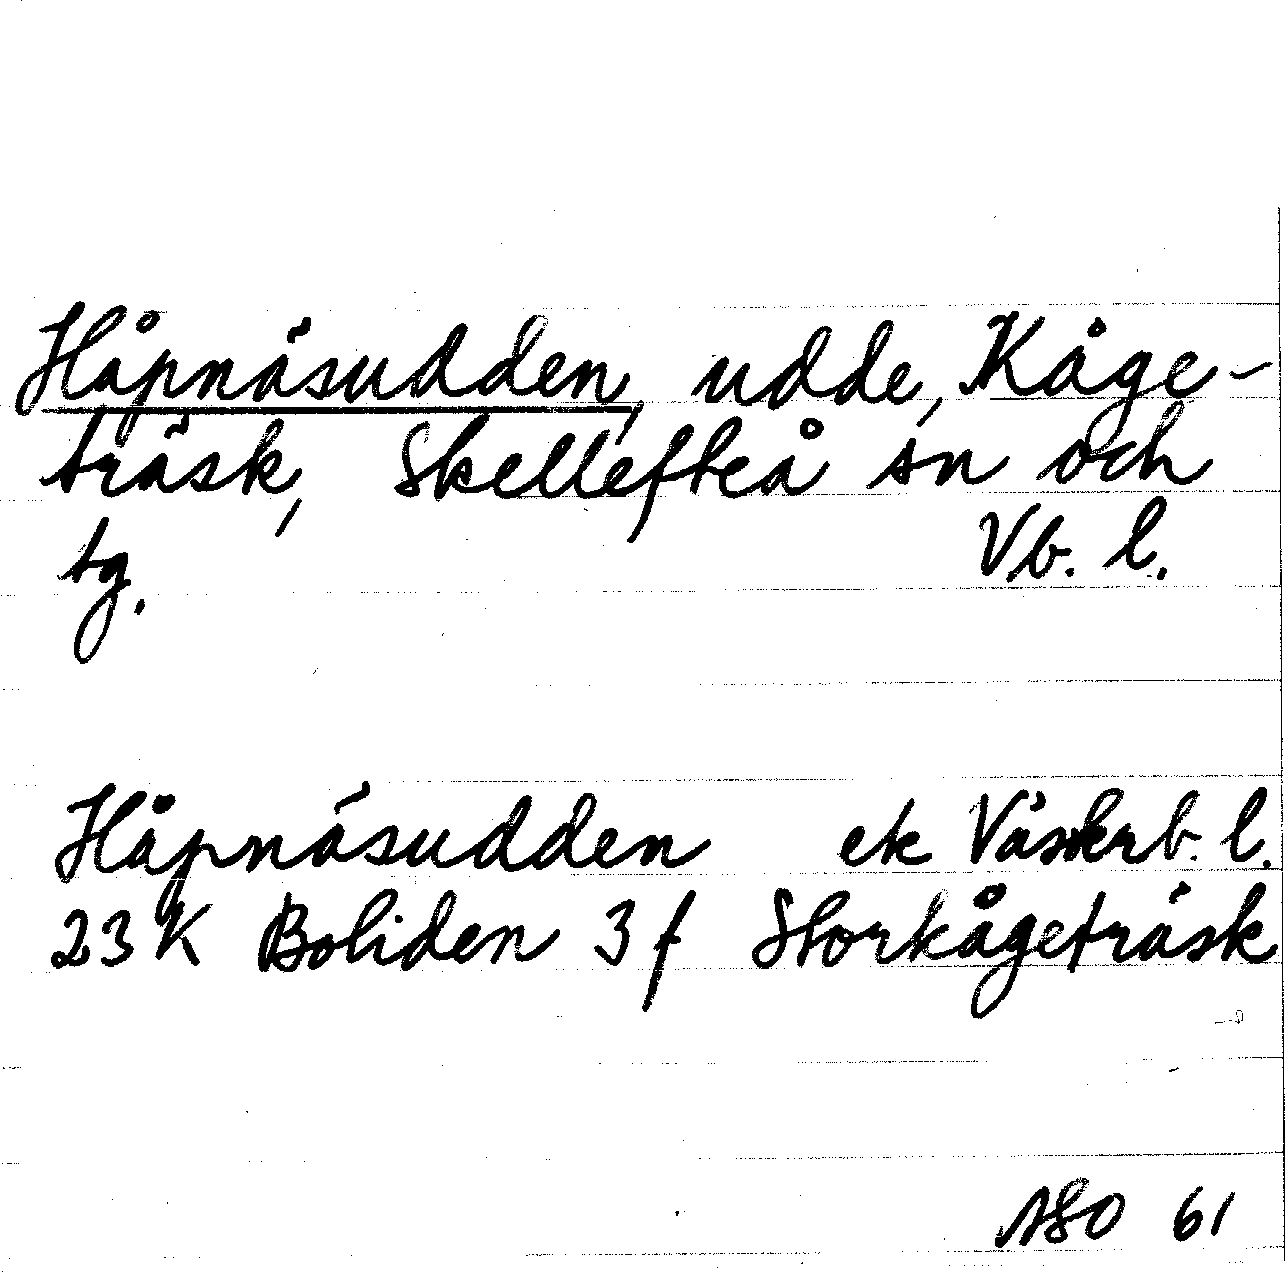 Håpnäsudden, udde, Kåge-
träsk, Skellefteå sn och
tg. Vb. l.
Håpnäsudden ek Västerb. l.
23 K Boliden 3 f Storkågeträsk
ASO 61